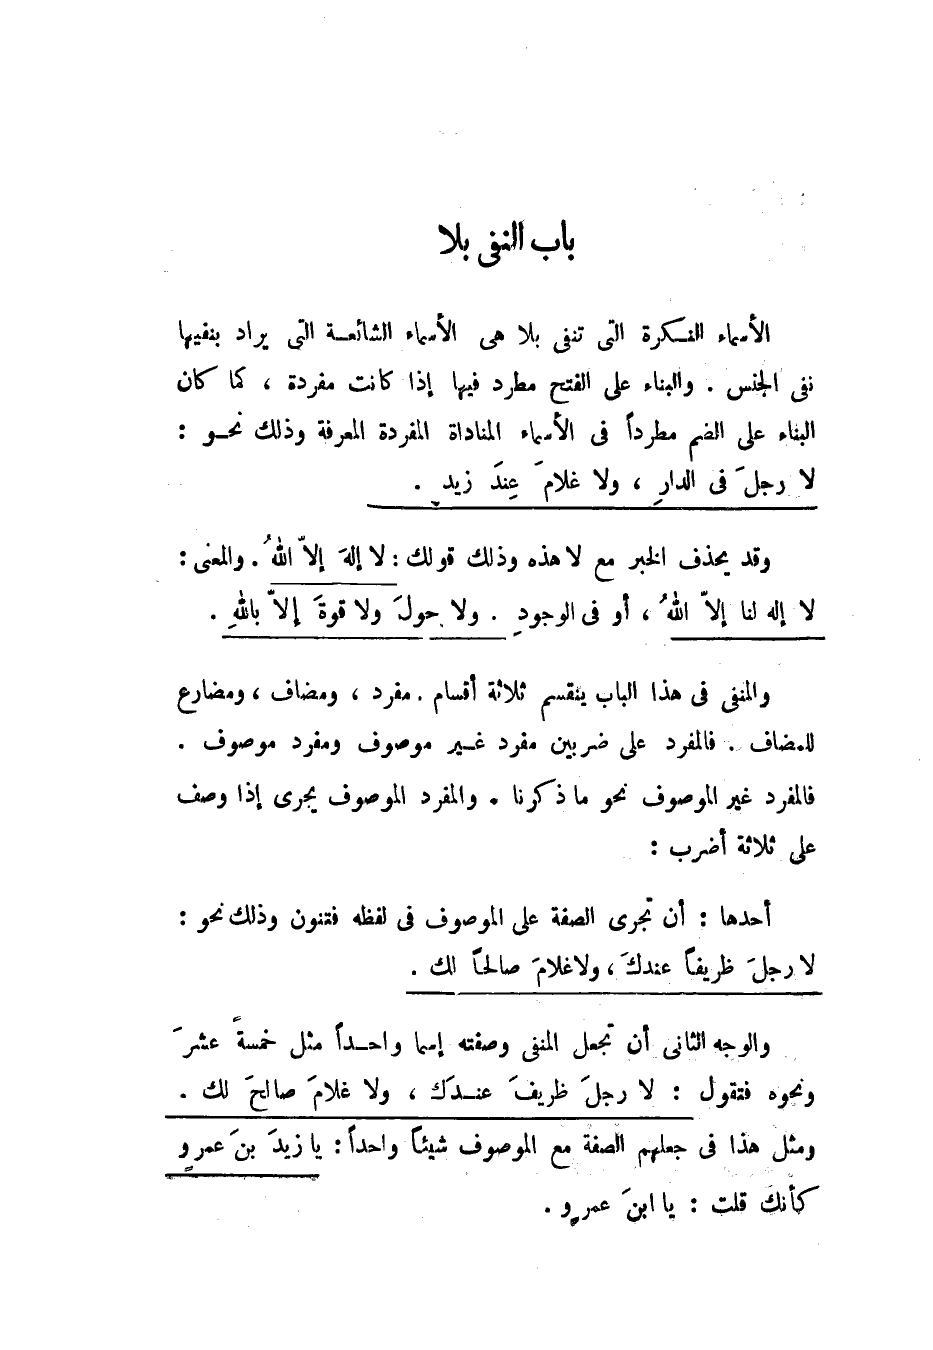 باب النفى بلا
الأسماء النكرة التى تنفى بلا هى الأسماء الشائعة التى يراد بنفيها
نفى الجنس . والبناء على الفتح مطرد فيها إذا كانت مفردة ، كما كان
البناء على الضم مطرداً فى الأسماء المناداة المفردة المعرفة وذلك نحو :
لا رجلَ فى الدارِ ، ولا غلامَ عِندَ زيدٍ .
وقد يحذف الخبر مع لا هذه وذلك قولك : لا إلهَ إلاّ اللهُ . والمعنى :
لا إله لنا إلاّ اللهُ ، أو فى الوجودِ . ولا حولَ ولا قوةَ إلاّ باللهِ .
والمنفى فى هذا الباب ينقسم ثلاثة أقسام . مفرد ، ومضاف ، ومضارع
للمضاف . فالمفرد على ضربين مفرد غير موصوف ومفرد موصوف .
فالمفرد غير الموصوف نحو ما ذكرنا . والمفرد الموصوف يجرى إذا وصف
على ثلاثة أضرب :
أحدها : أن تُجرى الصفة على الموصوف فى لفظه فتنون وذلك نحو :
لا رجلَ ظريفاً عندكَ ، ولا غلامَ صالحاً لك .
والوجه الثانى أن تُجعل المنفى وصفته إسما واحداً مثل خمسةَ عشرَ
ونحوه فتقول : لا رجلَ ظريفَ عندَكَ ، ولا غلامَ صالحَ لك .
ومثل هذا فى جعلهم الصفة مع الموصوف شيئاً واحداً : يا زيدَ بنَ عمرٍو
كأنكَ قلت : يا ابنَ عمرٍو .